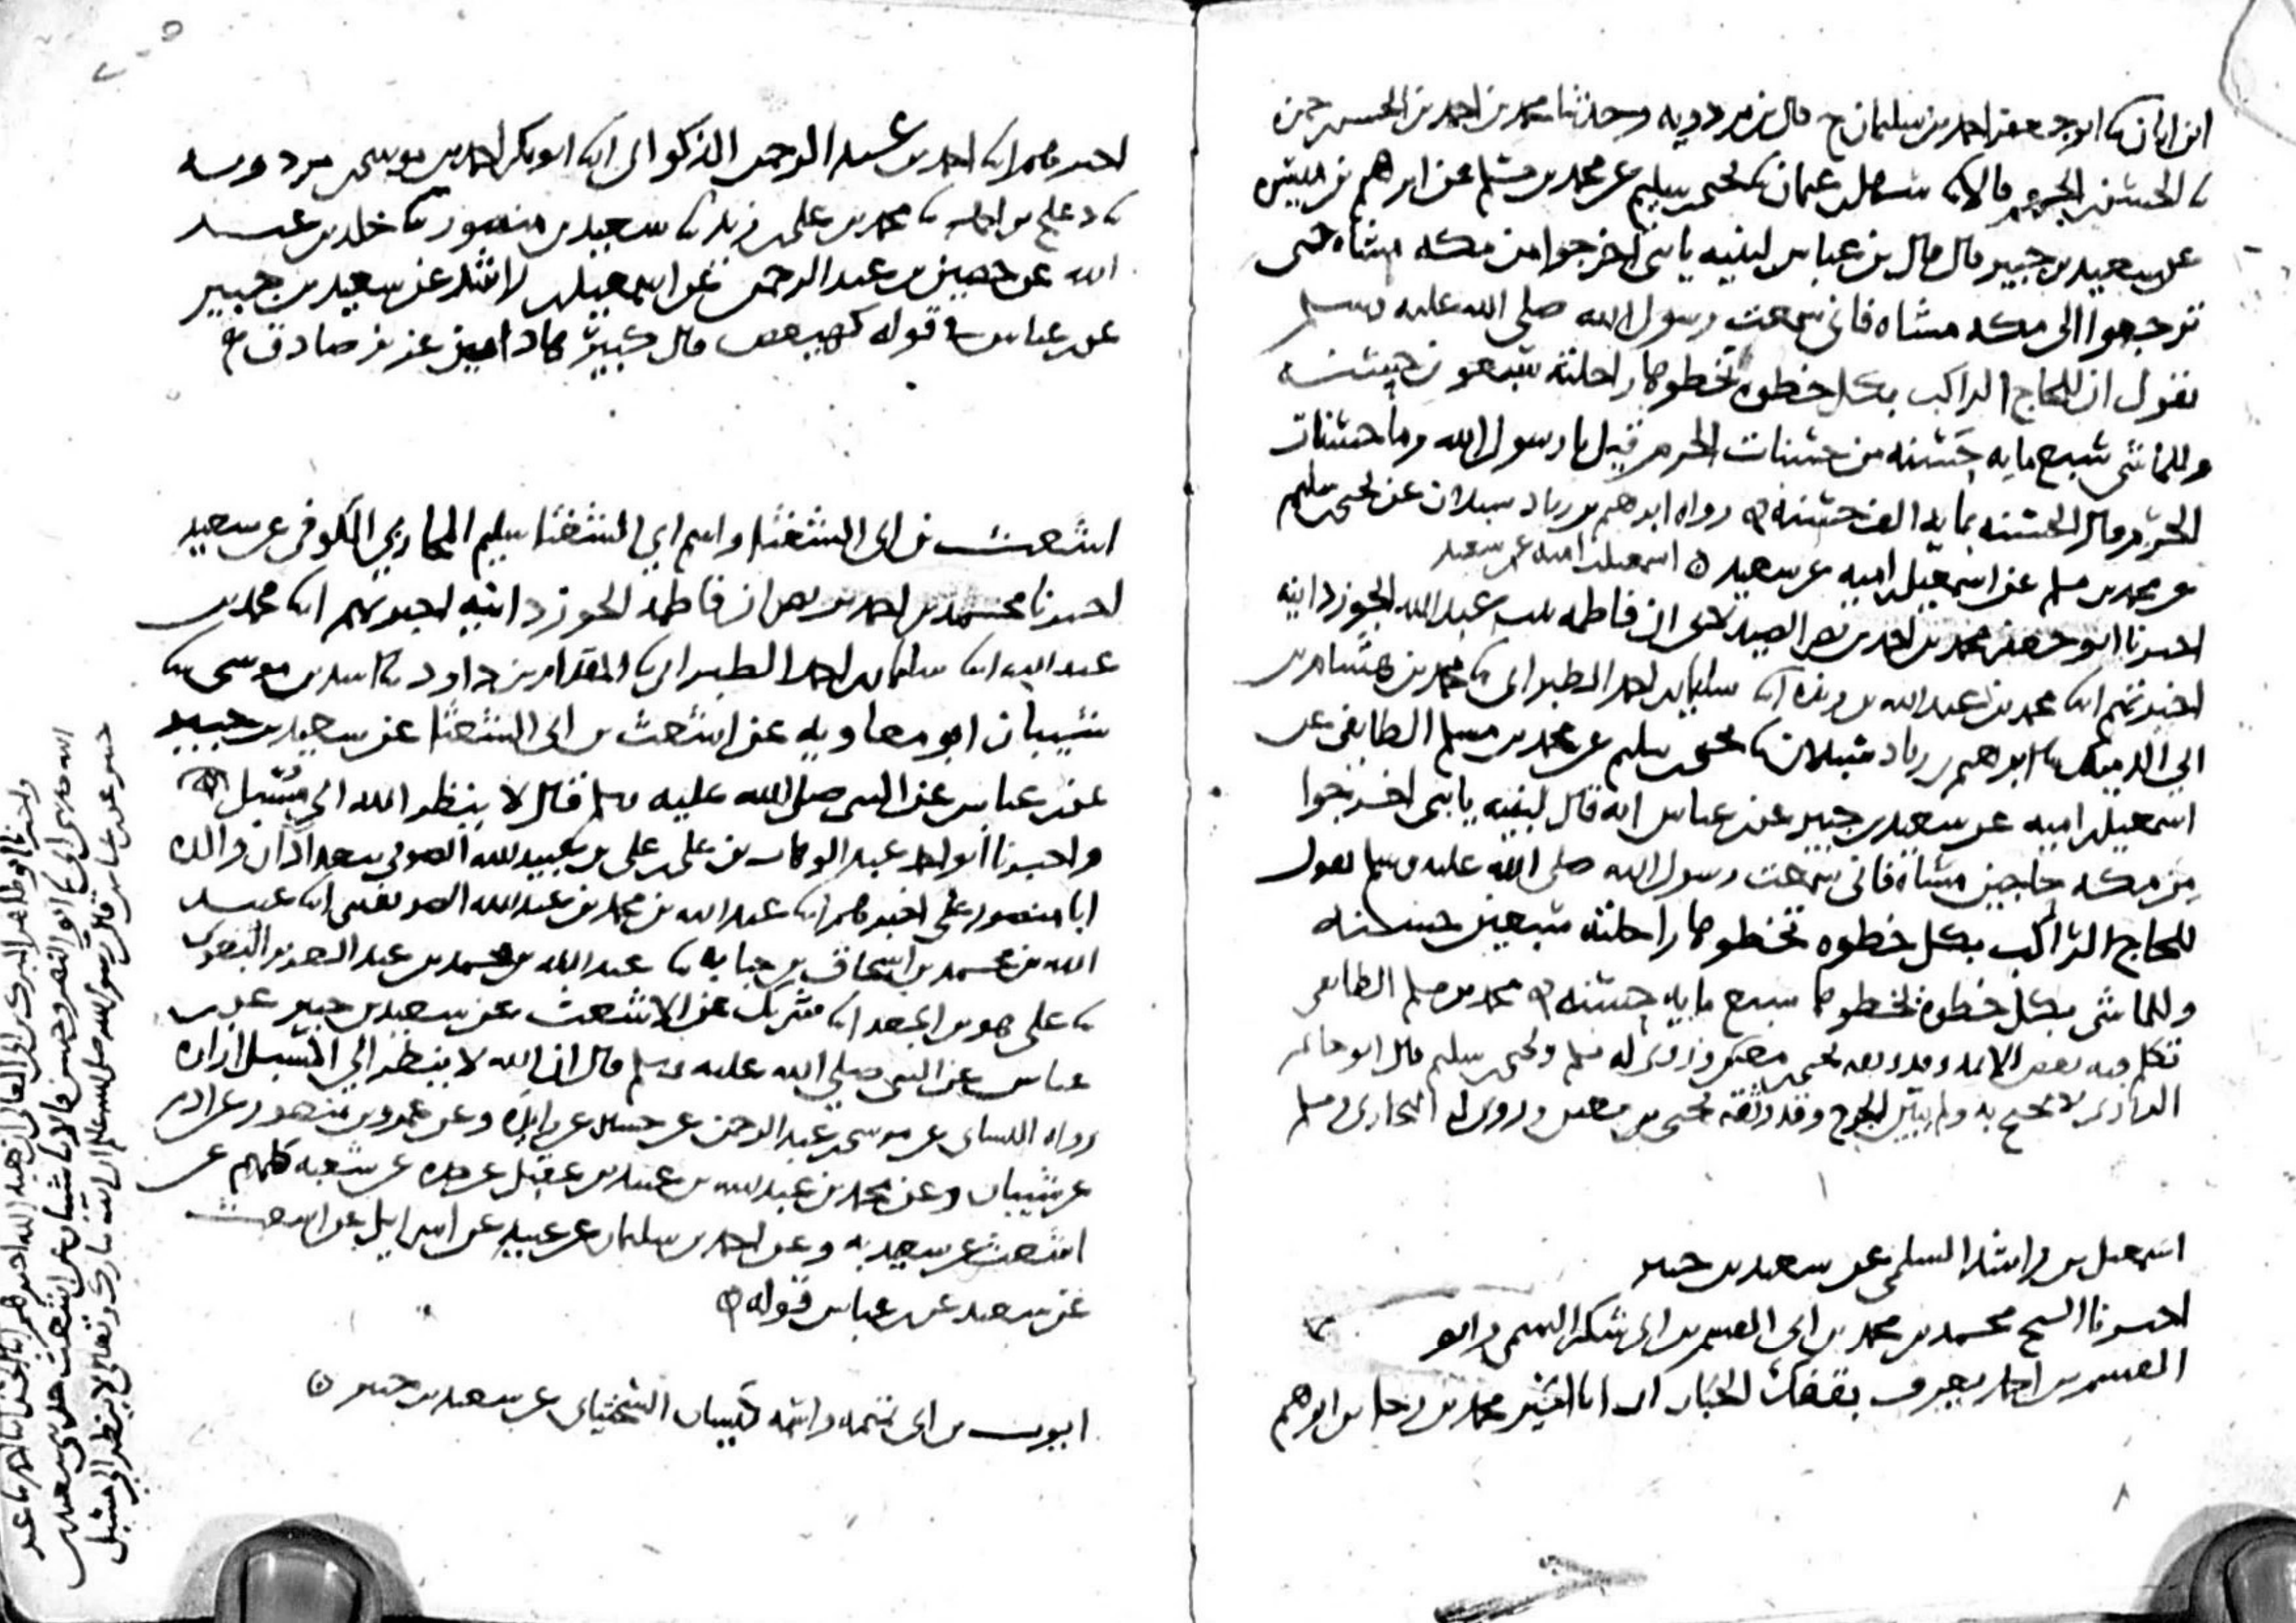 ابن ابان ثنا ابو جعفر احمد بن سليمان ح قال بن مردويه وحدثنا محمد بن احمد بن الحسن
ثنا الحسن بن الجهم قالا ثنا سهل بن عثمان ثنا يحيى بن سليم عن محمد بن مسلم عن ابراهيم بن ميسره
عن سعيد بن جبير قال قال بن عباس لبنيه يا بني اخرجوا من مكه مشاه حتى
ترجعوا الى مكه مشاه فاني سمعت رسول الله صلى الله عليه وسلم
يقول ان للحاج الراكب بكل خطوه تخطوها راحلته سبعون حسنه
وللماشي سبع مايه حسنه من حسنات الحرم قيل يا رسول الله وما حسنات
الحرم قال الحسنه بمايه الف حسنه رواه ابرهيم بن زياد سبلان عن يحيى بن سليم
عن محمد بن مسلم عن اسمعيل بن اميه عن سعيد اسمعيل بن اميه عن سعيد
اخبرنا ابو جعفر محمد بن احمد بن نصر الصيدلاني ان فاطمه بنت عبد الله الجوزدانيه
اخبرتهم ابنا محمد بن عبد الله بن ريذه ابنا سليمان بن احمد الطبراني ثنا محمد بن هشام بن
ابي الدميك ثنا ابرهيم بن زياد سبلان ثنا يحيى بن سليم عن محمد بن مسلم الطايفي عن
اسمعيل بن اميه عن سعيد بن جبير عن بن عباس انه قال لبنيه يا بني اخرجوا
من مكه حاجين مشاه فاني سمعت رسول الله صلى الله عليه وسلم يقول
للحاج الراكب بكل خطوه تخطوها راحلته سبعين حسنه
وللماشي بكل خطوه يخطوها سبع مايه حسنه محمد بن مسلم الطايفي
تكلم فيه بعض الايمه وقد وثقه يحيى بن معين وروى له مسلم ويحيى بن سليم قال ابو حاتم
الرازي لا يحتج به ولم يبين الجرح وقد وثقه يحيى بن معين وروى له البخاري ومسلم
اسمعيل بن راشد السلمي عن سعيد بن جبير
اخبرنا الشيخ محمد بن محمد بن ابي القسم بن ابي شكر التميمي وابو
القسم بن احمد يعرف بقفك الخباز ان ابا الخير محمد بن رجا بن ابرهيم
اخبرهم ابنا احمد بن عبد الرحمن الذكواني ابنا ابو بكر احمد بن موسى بن مردويه
ثنا دعلج بن احمد ثنا محمد بن علي بن زيد ثنا سعيد بن منصور ثنا خلد بن عبد
الله عن حصين بن عبد الرحمن عن اسمعيل بن راشد عن سعيد بن جبير
عن بن عباس في قوله كهيعص قال كبير هاد امين عزيز صادق
اشعث بن ابي الشعثا واسم ابي الشعثا سليم المحاربي الكوفي عن سعيد
اخبرنا محمد بن احمد بن نصر ان فاطمه الجوزدانيه اخبرتهم ابنا محمد بن
عبد الله ابنا سليمان بن احمد الطبراني ثنا المقدام بن داود ثنا اسد بن موسى ثنا
شيبان ابو معاويه عن اشعث بن ابي الشعثا عن سعيد بن جبير
عن بن عباس عن النبي صلى الله عليه وسلم قال لا ينظر الله الى مسبل
واخبرنا ابو احمد عبد الوهاب بن علي بن علي بن عبيد الله الصوفي ببغداد ان والده
ابا منصور علي اخبرهم ابنا عبد الله بن محمد بن عبد الله الصريفيني ابنا عبيد
الله بن محمد بن اسحاق بن حبابه ثنا عبد الله بن محمد بن عبد العزيز البغوي
ثنا علي هو بن الجعد ابنا شريك عن الاشعث عن سعيد بن جبير عن بن
عباس عن النبي صلى الله عليه وسلم قال ان الله لا ينظر الى المسبل ازاره
رواه النساي عن موسى بن عبد الرحمن عن حسين عن زايده وعن عمرو بن منصور عن ادم
عن شيبان وعن محمد بن عبد الله بن عبيد بن عقيل عن جده عن شعبه كلهم عن
اشعث عن سعيد به وعن احمد بن سليمان عن عبيد الله عن اسرايل عن اشعث
عن سعيد عن بن عباس قوله
ايوب بن ابي تميمه واسمه كيسان السختياني عن سعيد بن جبير
الله حدثني ابي ثنا ابو النضر وحسن قالا ثنا شيبان عن اشعث حدثني سعيد بن
جبير عن بن عباس قال رسول الله صلى الله عليه وسلم ان الله تبارك وتعالى لا ينظر الى مسبل